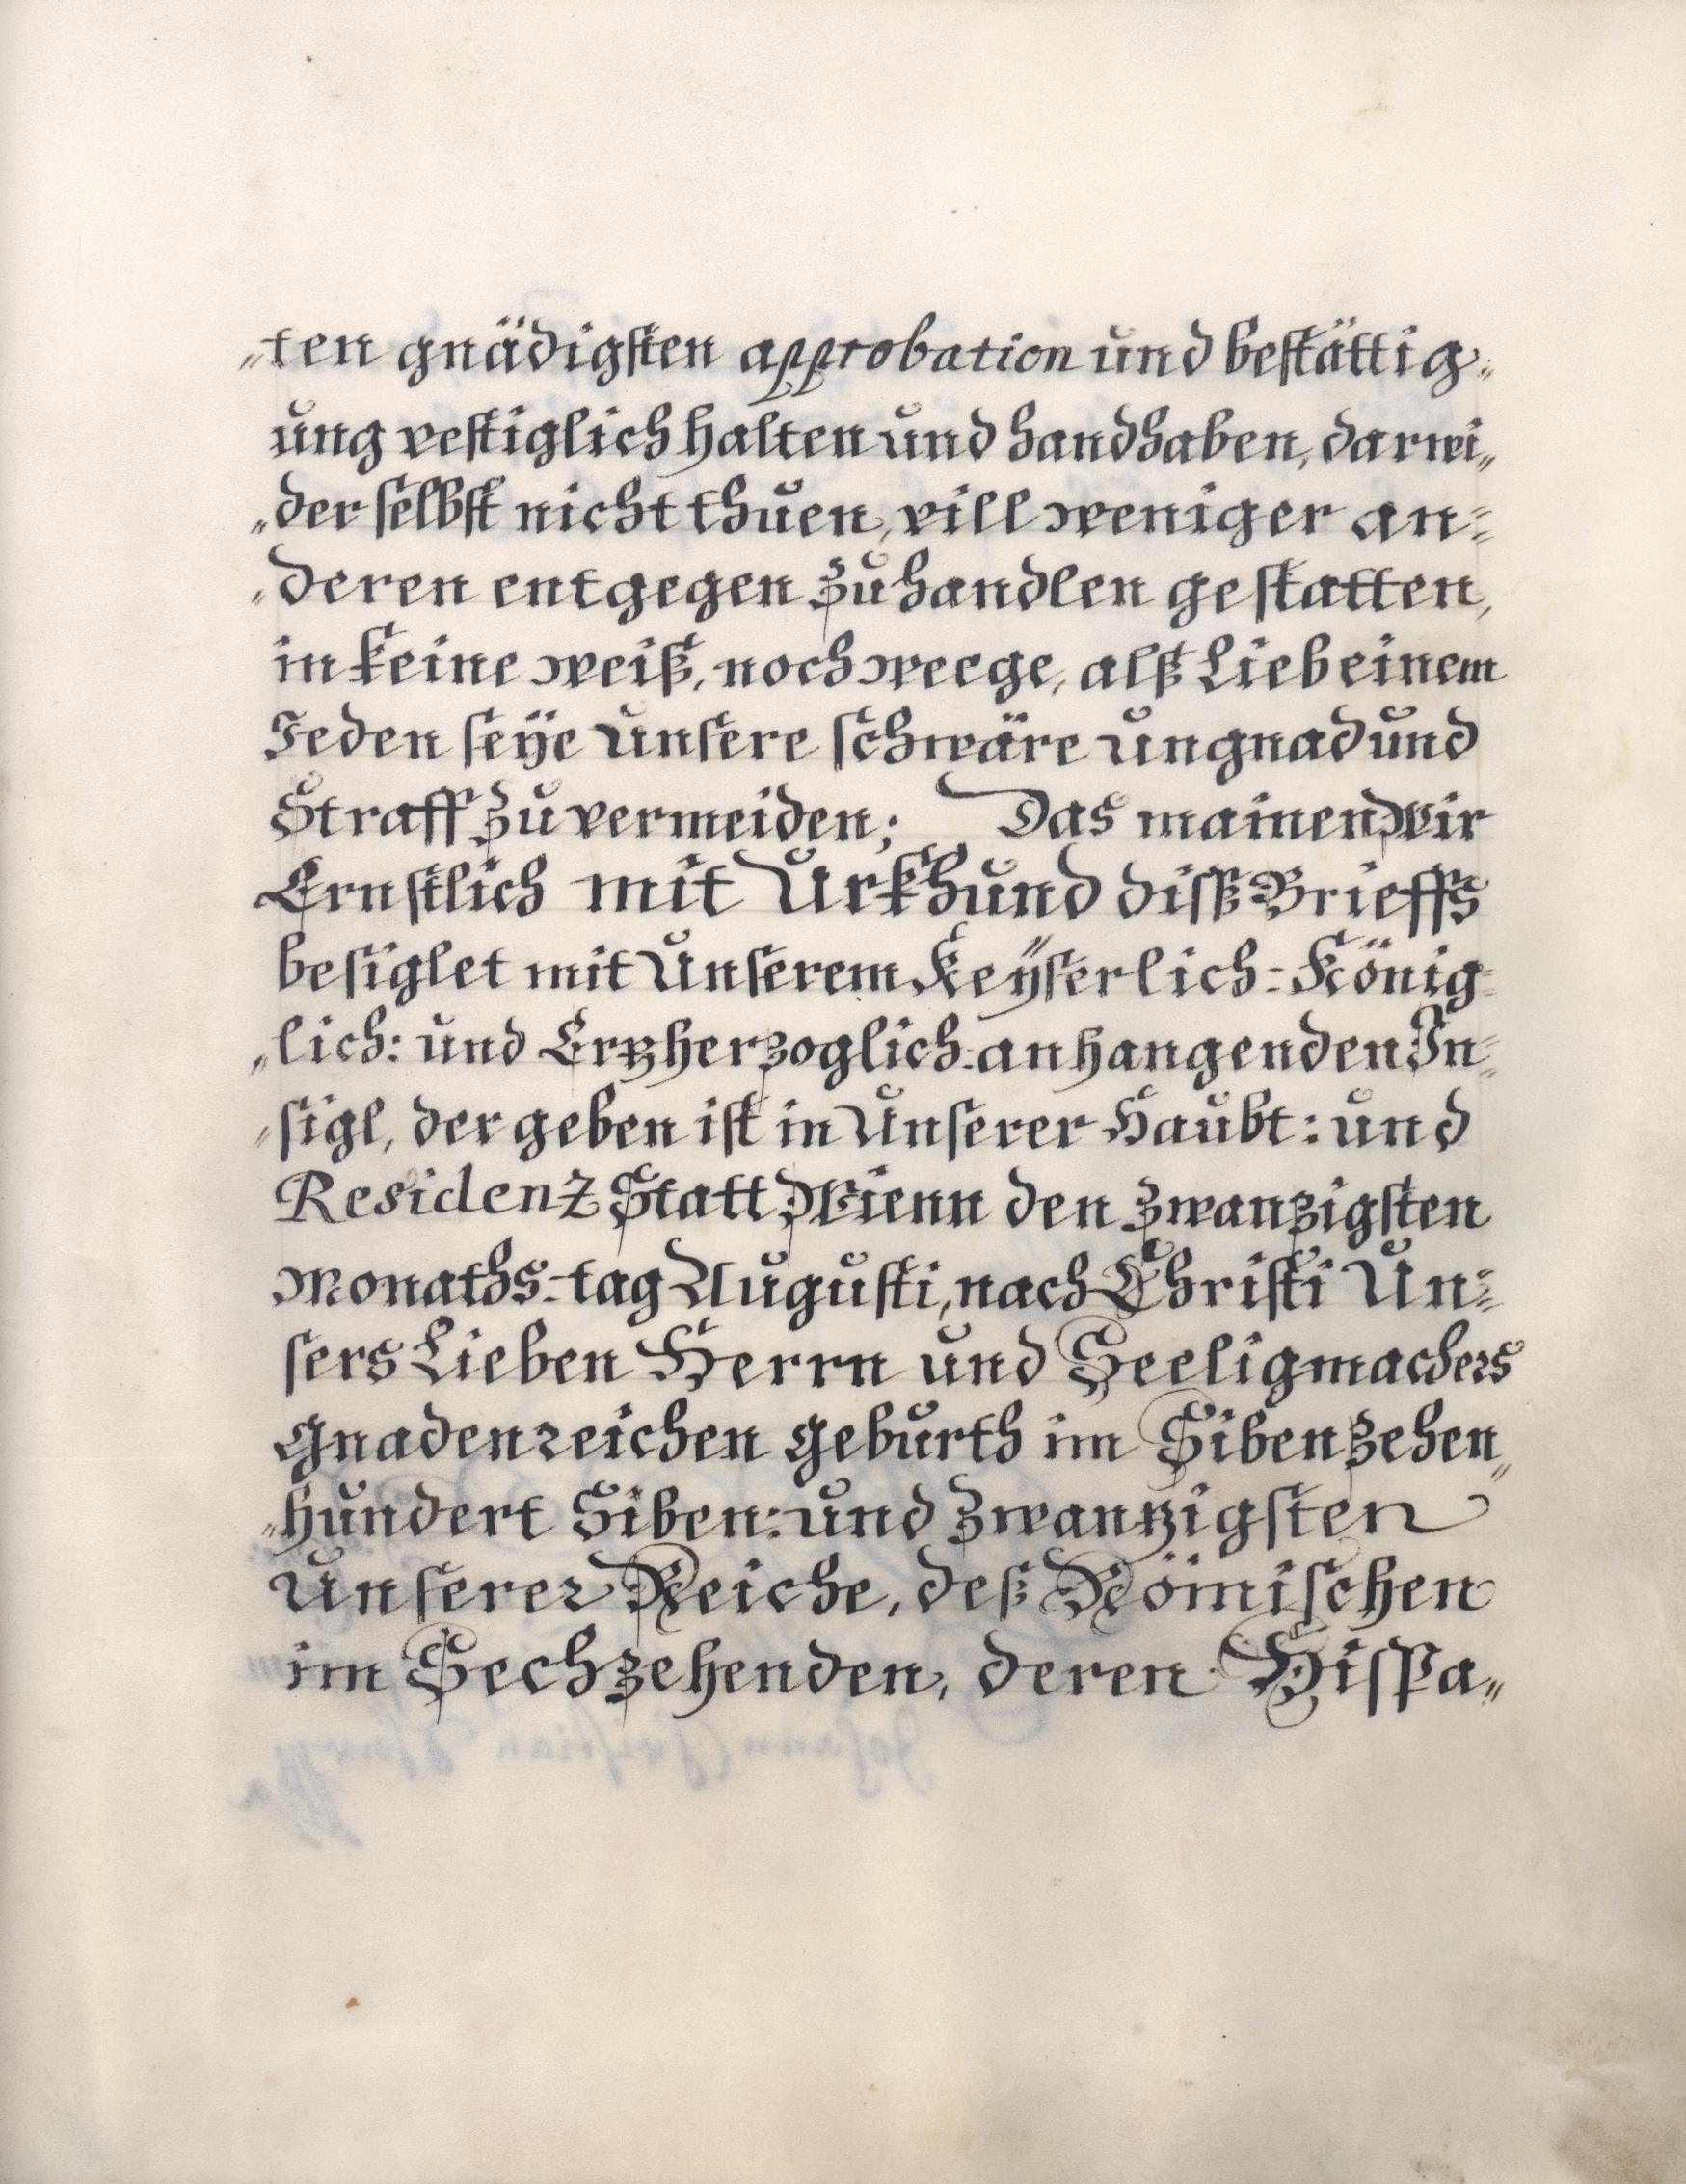 „ten gnädigsten approbation und bestättig„
ung vestiglich halten und handhaben, darwi„
„der selbst nicht thuen, vill weniger an=
„deren entgegen zu handlen gestatten,
in keine weiß, noch weege, alß Lieb einem
Jeden seÿe Unsere schwäre Ungnad und
Straff zu vermeiden; Das mainen Wir
Ernstlich mit Urkhund diß Brieffs
besiglet mit Unserem Keÿserlich=König=
„lich: und Ertzherzoglich=anhangenden In=
„sigl, der geben ist in Unserer Haubt: und
Residenz Statt Wienn den zwanzigsten
Monaths=tag Augusti, nach Christi Un=
sers Lieben Herrn und Seeligmachers
Gnadenreichen Geburth im Sibenzehen„
„hundert Siben: und zwantzigsten
Unserer Reiche, deß Römischen
im Sechzehenden, deren Hispa„